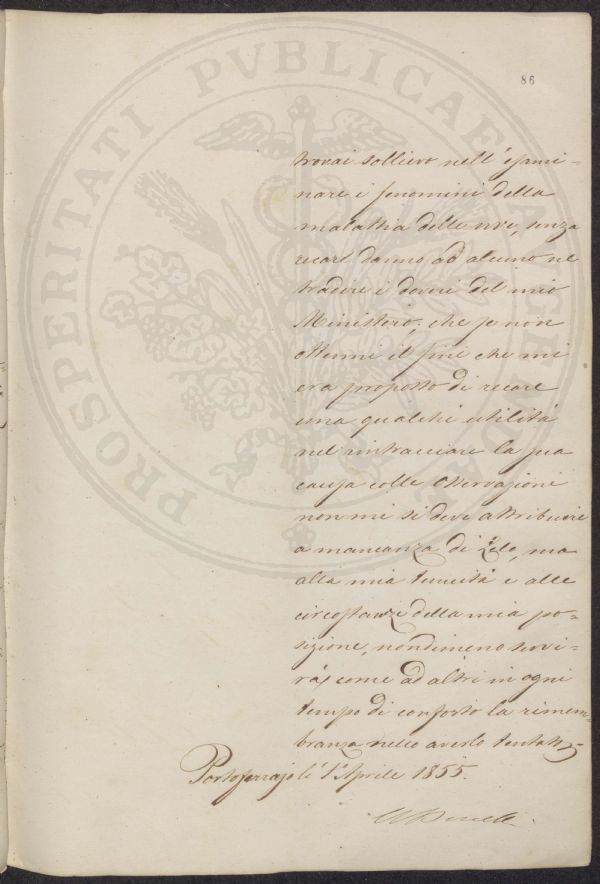 86
trovai sollievo nell'esami-
nare i fenomini della
malattia delle uve, senza
recar danno ad alcuno ne
tradire i doveri del mio
Ministero; che se non
ottenni il fine che mi
era proposto di recare
una qualche utilità
nel rintracciare la sua
causa colle Osservazioni
non mi si deve attribuire
a mancanza di Zelo, ma
alla mia tenuità e alle
circostanze della mia po=
sizione, nondimeno servi-
rà come ad altri in ogni
tempo di conforto la rimem-
branza nello averlo tentato
Portoferrajo li 1° Aprile 1855.
PROSPERITATI PVBLICAE AVGENDAE